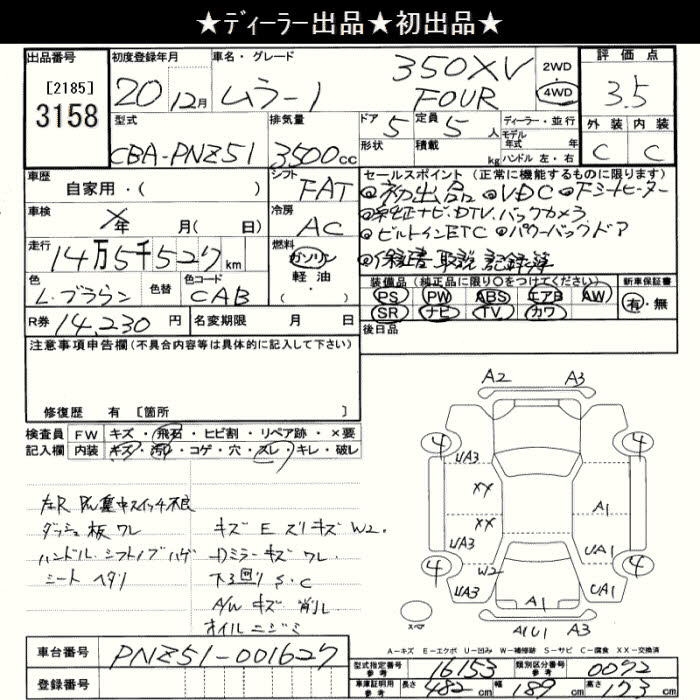 ★ディーラー出品★初出品★
出品番号 初度登録年月 車名・グレード 評価点
[2185] 3158 20年12月 ムラーノ 350XV FOUR 2WD 4WD 3.5
型式 排気量 ドア 定員 ディーラー・並行 外装 内装
CBA-PNZ51 3500cc 5 5人 モデル年式 年 C C
形状 積載 kg ハンドル 左・右
車歴 シフト セールスポイント(正常に機能するものに限ります)
自家用・( ) FAT ◎初出品 ◎VDC ◎Fシートヒーター
車検 冷房 ◎純正ナビ・DTV.バックカメラ
×年 月( 日) AC ◎ビルトインETC ◎パワーバックドア
走行 燃料 ◎保証書 取説 記録簿
14万5千527km ガソリン 軽・油 ( )
色 色替 色コード 装備品(純正品に限り○をつけてください) 新車保証書
L.ブラウン CAB PS PW ABS エアB AW 有・無
SR ナビ TV カワ
R券 14,230円 名変期限 月 日 後日品
注意事項申告欄(不具合内容等は具体的に記入して下さい)
修復歴 有 [箇所 ]
検査員 FW キズ・飛石・ヒビ割・リペア跡・×要
記入欄 内装 キズ・汚れ・コゲ・穴・スレ・キレ・破レ
左R P/W集中スイッチ不良
ダッシュ板 ワレ キズ E ズリキズ W2.
ハンドル.シフトノブ ハゲ Dミラー キズ ワレ.
シート ヘタリ 下回り S.C
A/W キズ 削レ
オイルニジミ
A2 A3
4 4
UA3
XX
XX A1
UA3 UA1
4 W2 4
UA3 A1 UA1
スペア A1U1 A3
A-キズ E-エクボ U-凹み W-補修跡 S-サビ C-腐食 XX-交換済
車台番号 PNZ51-001627
登録番号
型式指定番号 参考 16153 類別区分番号 参考 0072
車庫証明用 参考 長さ 482cm 幅 189cm 高さ 173cm